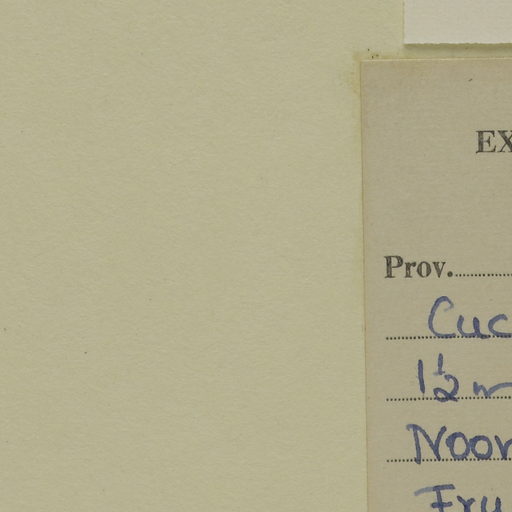 EX
Prov.
Cuc
1½ m
Noor
Fru